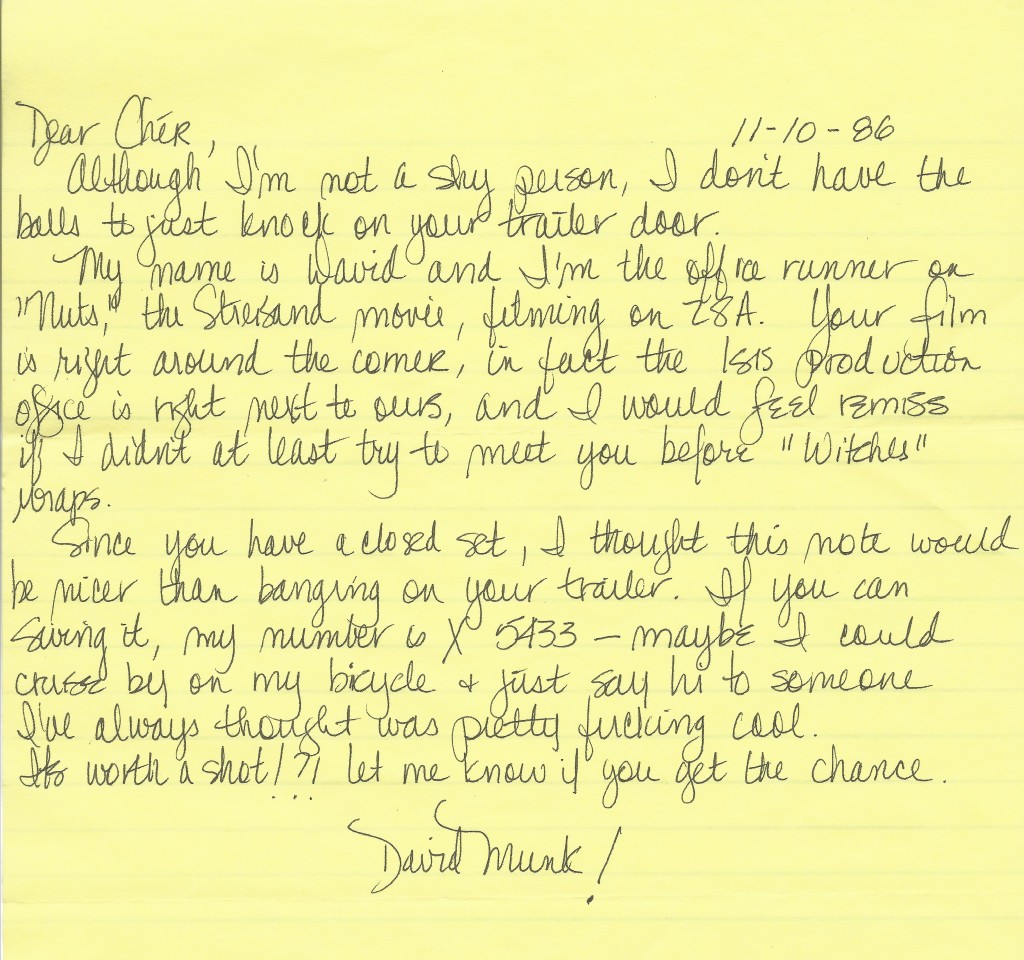 Dear Chér, 11-10-86
Although I'm not a shy person, I don't have the
balls to just knock on your trailer door.
My name is David and I'm the office runner on
"Nuts," the Streisand movie, filming on 28A. Your film
is right around the corner, in fact the Isis production
office is right next to ours, and I would feel remiss
if I didn't at least try to meet you before "Witches"
wraps.
Since you have a closed set, I thought this note would
be nicer than banging on your trailer. If you can
swing it, my number is X 5433 – maybe I could
cruise by on my bicycle & just say hi to someone
I've always thought was pretty fucking cool.
It's worth a shot!?! Let me know if you get the chance.
David Munk!